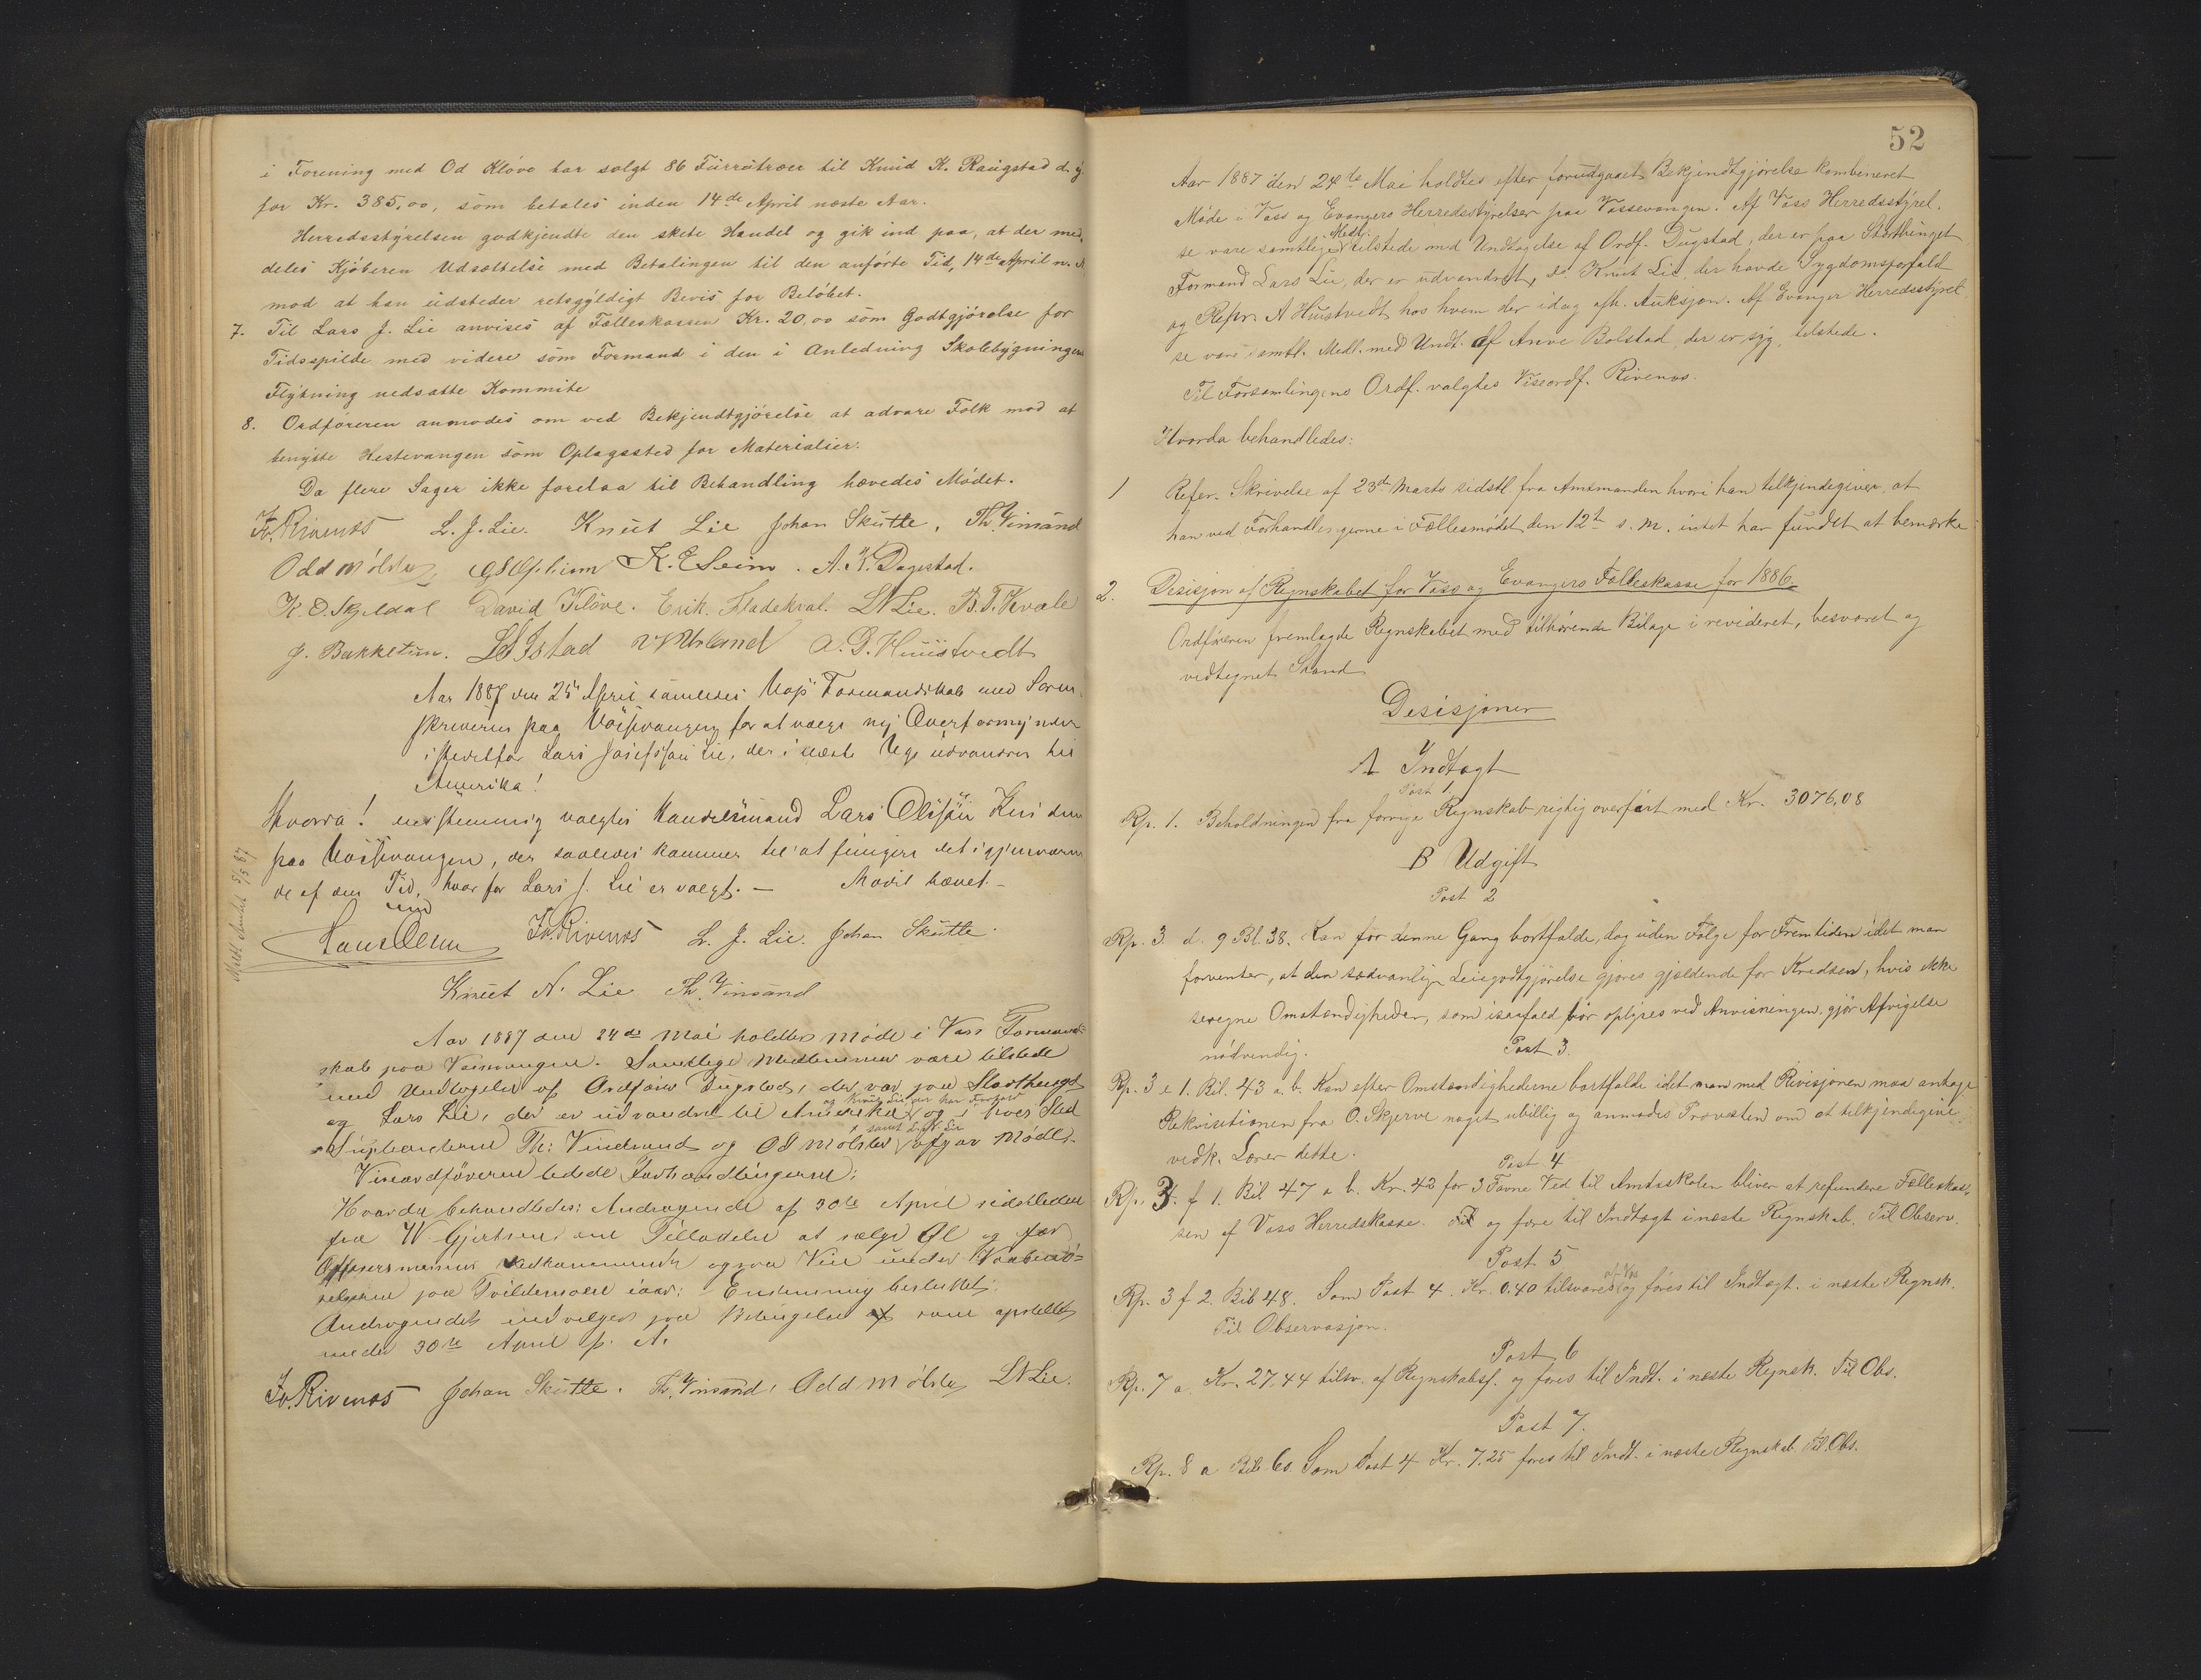 i Forening med Od Kløve har solgt 86 Furrutræer til Knud K. Raugstad d. y
for Kr. 385,00, som betales inden 14de April næste Aar.
Herredsstyrelsen godkjendte den skete Handel og gik ind paa, at der med
deles Kjøberen Udsættelse med Betalingen til den anførte Tid, 14de April n. A
mod at han udsteder retsgyldigt Bevis for Beløbet.
7. Til Lars J. Lie anvises af Fælleskassen Kr. 20,00 som Godtgjørelse for
Tidsspilde med videre som Formand i den i Anledning Skolebygningens
Flytning nedsatte Kommite
8. Ordføreren anmodes om ved Bekjendtgjørelse at advare Folk mod at
benytte Hestevangen som Oplagssted for Materialier.
Da flere Sager ikke forelaa til Behandling hævedes Mødet.
Fr. Rivenæs L. J. Lie. Knut Lie Johan Skutle. Th. Vinsand
Odd Mølster, K. E. Seim. A. K. Dagestad.
K. O. Skjeldal David Kløve. Erik Fladekval. LNLie. B. T. Kvale
J. Bakketun. Istad A. D. Huustvedt
Aar 1887 den 25 April samledes Vos Formandskab med Soren
skriveren paa Vossevangen for at vælge ny Overformynder
istedetfor Lars Josefson Lie, der i næste Uge udvandrer til
Amerika!
Hvorda! eenstemmig valgtes Handelsmand Lars Olsen
paa Vossevangen, der saaledes kommer til at fungere det igjenværen
de af den Tid, hvorfor Lars J. Lie er valgt. — Mødet hævet. —
Meddt Amtet 5/5 87
Fr. Rivenæs L. J. Lie. Johan Skutle.
Knut N. Lie Th. Vinsand
Aar 1887 den 24de Mai holdtes Møde i Voss Formand-
skab paa Vossevangen. Samtlige Medlemmer vare tilstede
med Undtagelse af Ordfører Dugstad, der var paa Storthinget
og Knut Lie der har Forfald
og Lars Lie, der er udvandret til Amerika og i hvers Sted
samt L. N. Lie
Suppleanterne Th: Vindsand og Od Mølster afgav Møde.
Viseordføreren ledede Forhandlingerne:
Hvorda behandledes: Andragende af 30te April sidstleden
fra W Gjertsen om Tilladelse at sælge Øl og for
Offisersmessens Vedkommende ogsaa Vin under Vaabenø-
velserne paa Tvildemoen iaar: Enstemmig besluttet:
Andragendet indvilges paa Betingelse som opstillet
under 30te April f. A.
Fr. Rivenæs Johan Skutle. Th. Vinsand, Odd Mølster LNLie.
52
Aar 1887 den 24de Mai holdtes efter forudgaaet Bekjendtgjørelse kombineret
Møde i Voss og Evangers Herredsstyrelser paa Vossevangen. Af Voss Herredsstyrel-
Medl.
se vare samtlige tilstede med Undtagelse af Ordf. Dugstad, der er paa Storthinget
Formand Lars Lie, der er udvandret, do Knut Lie der havde Sygdomsforfald
og Repr. A Huustvedt hos hvem der idag afh. Auksjon. Af Evanger Herredsstyrel
se vare samtl. Medl. med Undt. af Anve Bolstad, der er syg, tilstede.
Til Forsamlingens Ordf. valgtes Viseordf. Rivenæs.
Hvorda behandledes:
1 Refer. Skrivelse af 23de Marts sidstl. fra Amtmanden hvori han tilkjendegiver, at
han ved Forhandlingerne i Fællesmødet den 12te s. M. intet har fundet at bemærke
2. Desisjon af Regnskabet for Voss og Evangers Fælleskasse for 1886.
Ordføreren fremlagde Regnskabet med tilhørende Bilage i revideret, besvaret og
vedtegnet Stand
Desisjoner
A Indtægt
Post 1
Rp. 1. Beholdningen fra forrige Regnskab rigtig overført med Kr. 3076,08
B Udgift
Post 2
Rp. 3. d. 9 Bl. 38. Kan for denne Gang bortfalde, dog uden Følge for Fremtiden idet man
forventer, at den sædvanlige Leiegodtgjørelse gjøres gjældende for Kredsen, hvis ikke
seregne Omstændigheder, som isaafald bør oplyses ved Anvisningen, gjør Afvigelse
nødvendig.
Post 3.
Rp. 3 e 1. Bil. 43 a. b. Kan efter Omstændighederne bortfalde idet man med Revisjonen maa antage
Rekvisitionen fra O. Skjerve noget ubillig og anmodes Provsten om at tilkjendegive
vedk. Lærer dette.
Post 4
Rp. 3. f 1. Bil 47 a b. Kr. 42 for 3 Favne Ved til Amtsskolen bliver at refundere Fælleskas-
sen af Voss Herredskasse. og føre til Indtægt i næste Regnskab. Til Observ.
Post 5
af Vos
Rp. 3 f 2. Bil 48. Som Post 4. Kr. 0.40 tilsvares og føres til Indtægt. i næste Regnsk.
Til Observasjon.
Post 6
Rp. 7 a. Kr. 27.44 tilsv. af Regnskabsf. og føres til Indt. i næste Regnsk. Til Obs.
Post 7.
Rp. 8 a Bil 60. Som Post 4 Kr. 7.25 føres til Indt. i næste Regnskab. Til Obs.